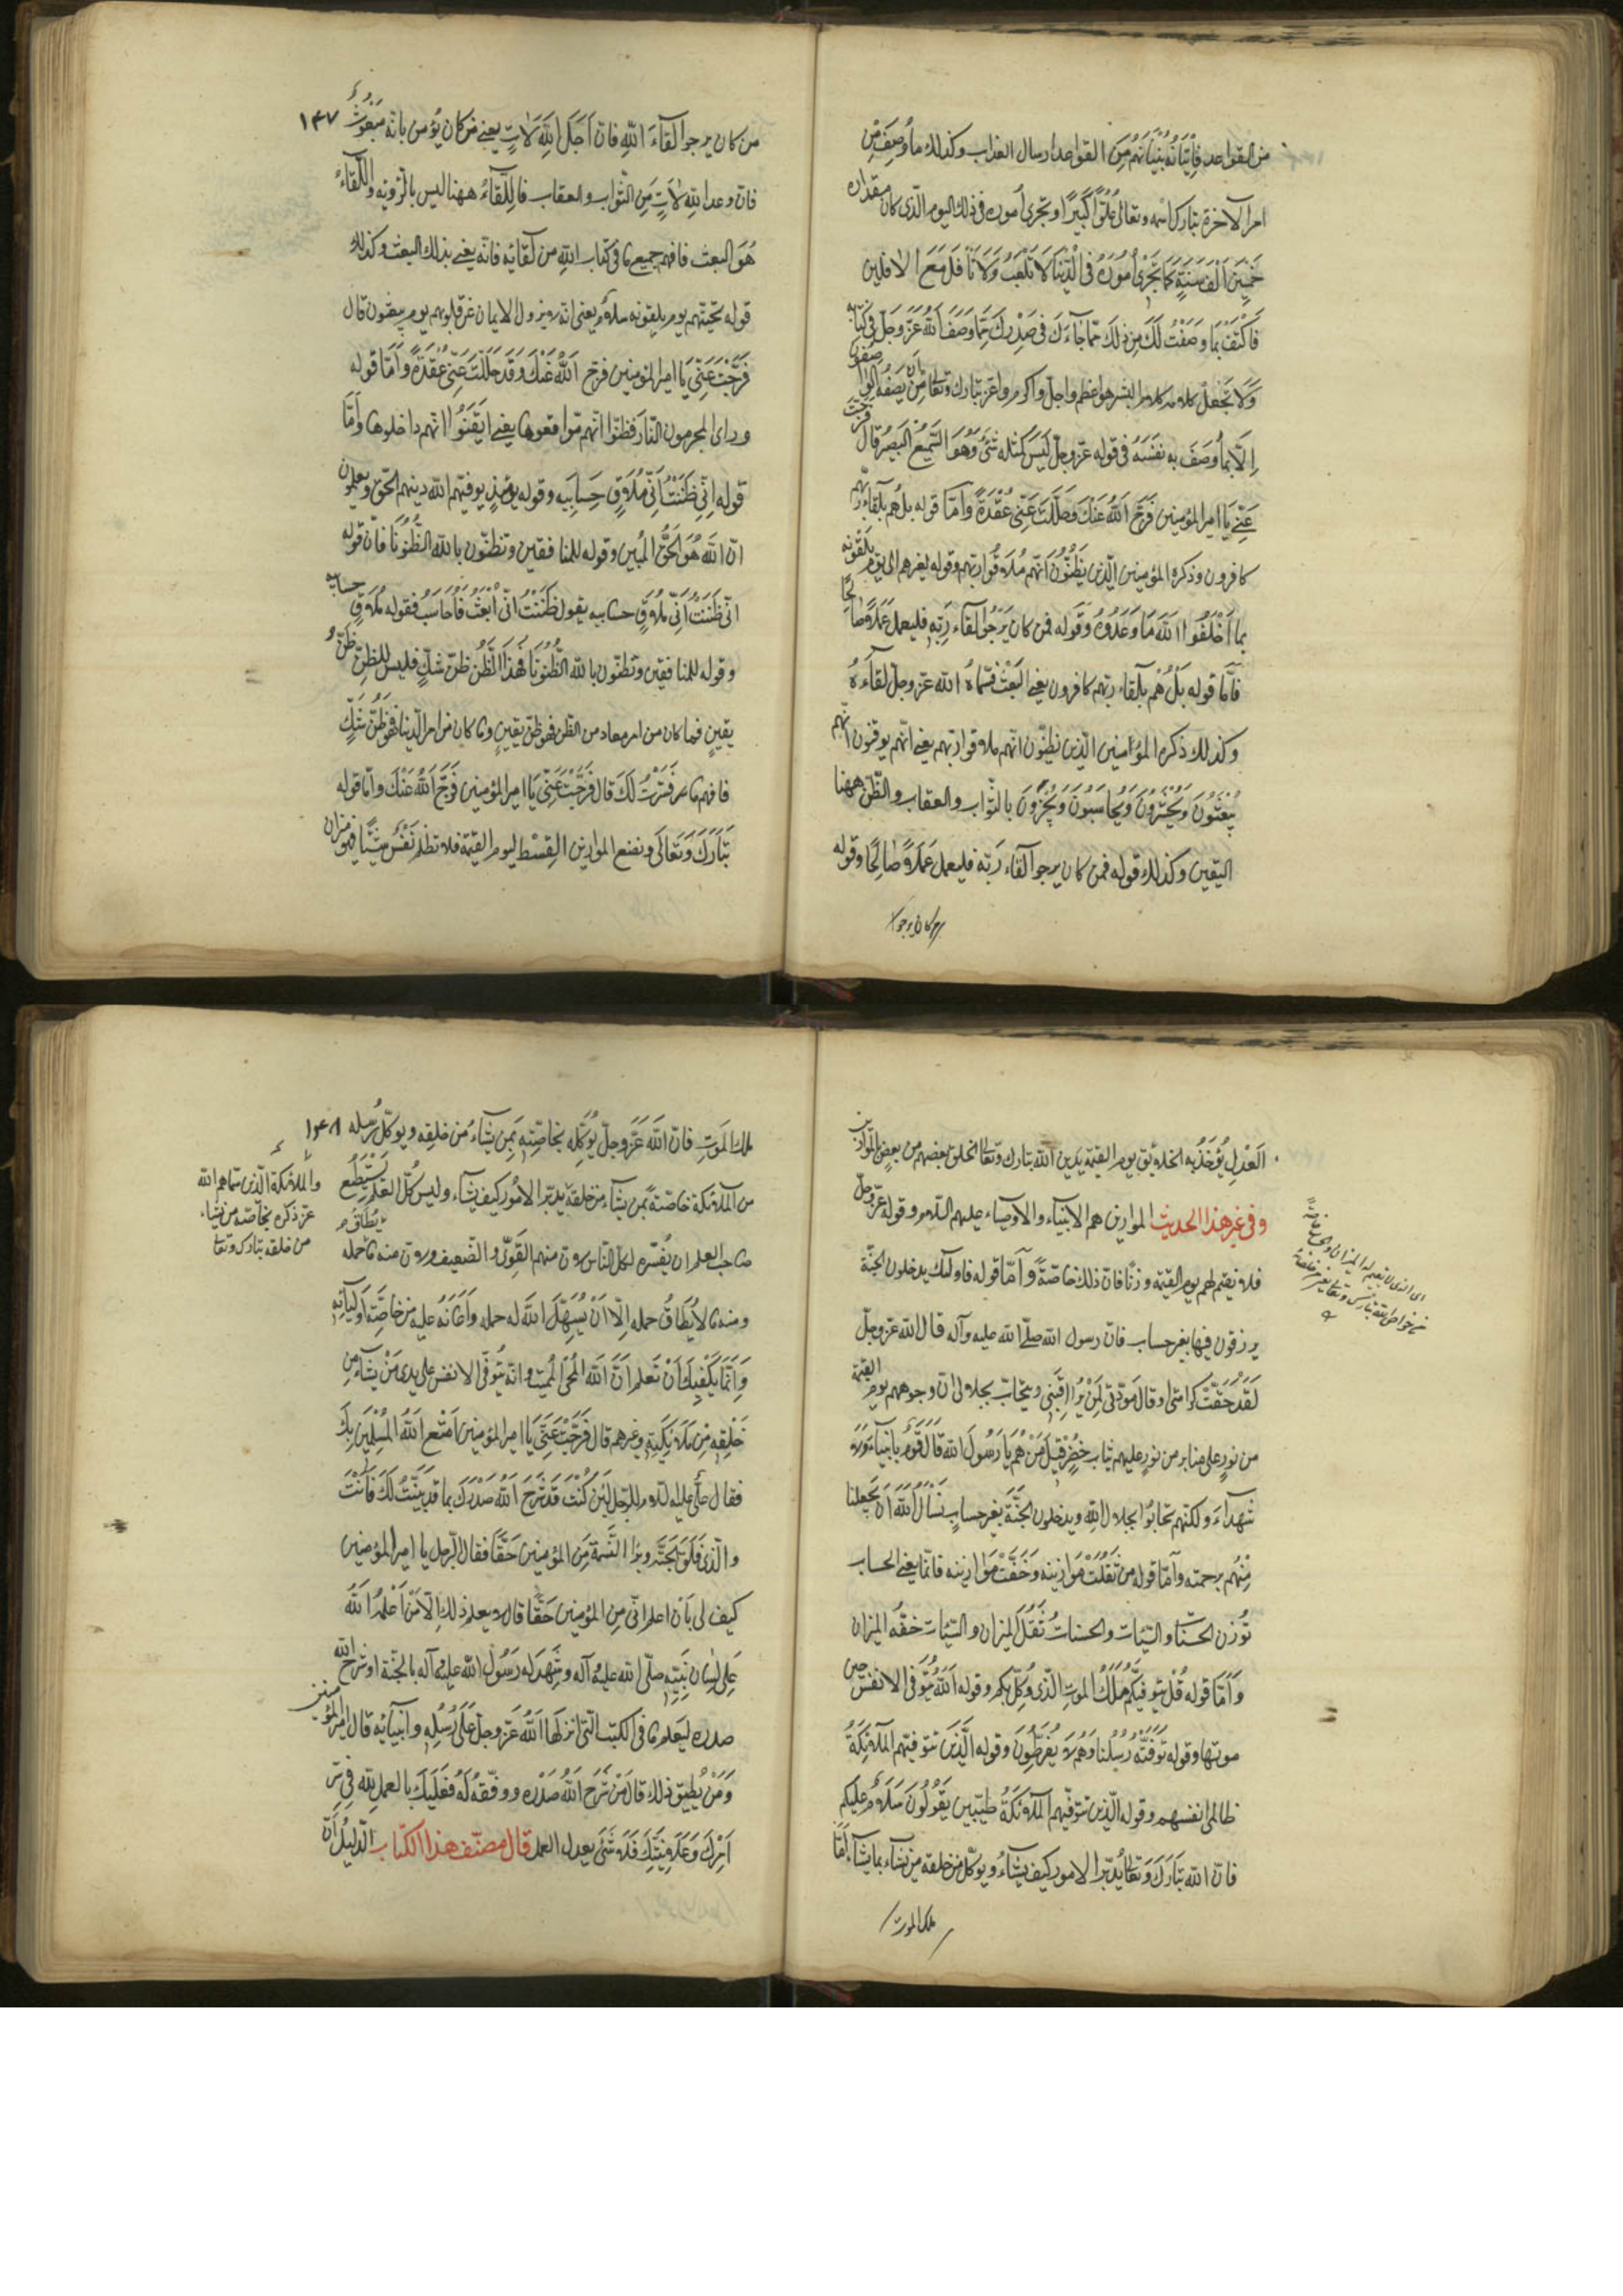 من القواعد فإتيانه بنيانهم من القواعد ارسال العذاب وكذلك ما وصف من
امر الآخرة تبارك اسمه وتعالى علوّا كبيرا وتجرى اموره فى ذلك اليوم الّذى كان مقداره
خمسين الف سنة كما تجرى اموره فى الدّنيا لا تلعب ولا تأفل مع الآفلين
فاكتف بما وصفت لك من ذلك ممّا جاءك فى صدرك ممّا وصف الله عزّ وجلّ فى كتابه
ولا تجعل كلامه كلام البشر هو اعظم واجلّ واكرم واعزّ تبارك وتعالى من ان يصفه الواصفون
إلّا بما وصف به نفسه فى قوله عزّ وجلّ ليس كمثله شىء وهو السّميع البصير قال فرّجت
عنّى يا امير المؤمنين فرّج الله عنك وحللت عنّى عقدة وامّا قوله بل هم بلقاء ربّهم
كافرون وذكره المؤمنين الّذين يظنّون انّهم ملاقوا ربّهم وقوله لغيرهم الى يوم يلقونه
بما اخلفوا الله ما وعدوه وقوله فمن كان يرجوا لقاء ربّه فليعمل عملا صالحا
فأمّا قوله بل هم بلقاء ربّهم كافرون يعنى البعث فسمّاه الله عزّ وجلّ لقاءه
وكذلك ذكره المؤمنين الّذين يظنّون انّهم ملاقوا ربّهم يعنى انّهم يوقنون انّهم
يبعثون ويحشرون ويحاسبون ويجزون بالثّواب والعقاب والظّنّ ههنا
اليقين وكذلك قوله فمن كان يرجوا لقاء ربّه فليعمل عملا صالحا وقوله
من كان يرجوا
١٤٧
من كان يرجوا لقاء الله فانّ اجل الله لآت يعنى من كان يؤمن بانّه مبعوث
فانّ وعد الله لآت من الثّواب والعقاب فاللّقاء ههنا ليس بالرّؤية واللّقاء
هو البعث فافهم جميع ما فى كتاب الله من لقائه فانّه يعنى بذلك البعث وكذلك
قوله تحيّتهم يوم يلقونه سلام يعنى انّه لا يزول الايمان عن قلوبهم يوم يبعثون قال
فرّجت عنّى يا امير المؤمنين فرّج الله عنك وقد حللت عنّى عقدة وامّا قوله
وراى المجرمون النّار فظنّوا انّهم مواقعوها يعنى ايقنوا انّهم داخلوها وامّا
قوله انّى ظننت انّى ملاق حسابيه وقوله يومئذ يوفّيهم الله دينهم الحقّ ويعلمون
انّ الله هو الحقّ المبين وقوله للمنافقين وتظنّون بالله الظّنونا فانّ قوله
انّى ظننت انّى ملاق حسابيه يقول ظننت انّى ابعث فاحاسب فقوله ملاق حسابيه
وقوله للمنافقين وتظنّون بالله الظّنونا فهذا الظّنّ ظنّ شكّ فليس للظنّ ظنّ
يقين فما كان من امر معاد من الظّنّ فهو ظنّ يقين وما كان من امر الدّنيا فهو ظنّ شكّ
فافهم ما فسّرت لك قال فرّجت عنّى يا امير المؤمنين فرّج الله عنك وامّا قوله
تبارك وتعالى ونضع الموازين القسط ليوم القيمة فلا تظلم نفس شيئا فهو ميزان
العدل يؤخذ به الخلائق يوم القيمة يدين الله تبارك وتعالى الخلق بعضهم من بعض بالموازين
وفى غير هذا الحديث الموازين هم الانبياء والاوصياء عليهم السّلام وقوله عزّ وجلّ
فلا نقيم لهم يوم القيمة وزنا فانّ ذلك خاصّة وامّا قوله فاولئك يدخلون الجنّة
يرزقون فيها بغير حساب فانّ رسول الله صلّى الله عليه وآله قال قال الله عزّ وجلّ
لقد حقّت كرامتى او قال مودّتى لمن يراقبنى ويتحابّ بجلالى انّ وجوههم يوم القيمة
من نور على منابر من نور عليهم ثياب خضر قيل من هم يا رسول الله قال قوم ليسوا بانبياء ولا
شهداء ولكنّهم تحابّوا بجلال الله ويدخلون الجنّة بغير حساب نسأل الله ان يجعلنا
منهم برحمته وامّا قوله من ثقلت موازينه وخفّت موازينه فانّما يعنى الحساب
توزن الحسنات والسّيّئات والحسنات ثقل الميزان والسّيّئات خفّة الميزان
وامّا قوله قل يتوفّيكم ملك الموت الّذى وكّل بكم وقوله الله يتوفّى الانفس حين
موتها وقوله توفّته رسلنا وهم لا يفرّطون وقوله الّذين تتوفّيهم الملائكة
ظالمى انفسهم وقوله الّذين تتوفّيهم الملائكة طيّبين يقولون سلام عليكم
فانّ الله تبارك وتعالى يدبّر الامور كيف يشاء ويوكّل من خلقه من يشاء بما يشاء امّا
ملك الموت
١٤٨
ملك الموت فانّ الله عزّ وجلّ يوكّله بخاصّته بمن يشاء من خلقه ويوكّل رسله
من الملائكة خاصّة بمن يشاء من خلقه يدبّر الامور كيف يشاء وليس كلّ العلم يستطيع
صاحب العلم ان يفسّره لكلّ النّاس لانّ منهم القوىّ والضّعيف ولانّ منه ما حمله
ومنه ما لا يطاق حمله إلّا ان يسهّل الله له حمله واعانه عليه من خاصّة اوليائه
وانّما يكفيك ان تعلم انّ الله المحيى المميت وانّه يتوفّى الانفس على يدى من يشاء من
خلقه من ملائكته وغيرهم قال فرّجت عنّى يا امير المؤمنين امتع الله المسلمين بك
فقال علىّ عليه السّلام للرّجل لئن كنت قد شرح الله صدرك بما قد بيّنت لك فانت
والّذى فلق الحبّة وبرأ النّسمة من المؤمنين حقّا فقال الرّجل يا امير المؤمنين
كيف لى بان اعلم انّى من المؤمنين حقّا قال لا يعلم ذلك إلّا من اعلمه الله
على لسان نبيّه صلّى الله عليه وآله وشهد له رسول الله عليه وآله بالجنّة او شرح الله
صدره ليعلم ما فى الكتب الّتى انزلها الله عزّ وجلّ على رسله وانبيائه قال يا امير المؤمنين
ومن يطيق ذلك قال من شرح الله صدره ووفّقه له فعليك بالعمل لله فى سرّ
امرك وعلانيتك فلا شىء يعدل العمل قال مصنّف هذا الكتاب الدّليل انّ
والملائكة الّذين سمّاهم الله
عزّ ذكره بخاصّة من يشاء
من خلقه تبارك وتعالى
يطاق